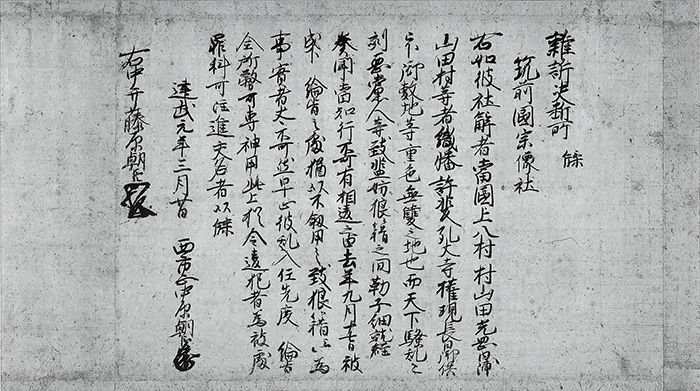 雜訴決断所 牒
筑前國宗像社
右如彼社解者當國上八村村山田光
山田村等者織幡許斐孔大寺權現長日御供
米御敷地等重色無雙之地也而天下騒乱之
刻悪黨人等致監妨狼籍之間勒子細就經
奏聞當知行不可有相違之由去年九月廿日被
成 綸旨之處猶以不叙用之致狼籍云々爲
事實者太不可然早止彼乱入任先度 綸旨
全所務可専神用此上猶令違犯者爲被處
罪科可注進交名者以牒
建武元年三月廿日 西市正中原朝臣
右中弁藤原朝臣